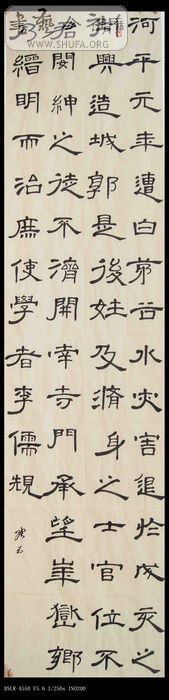 WWW.SHUFA.ORG
河平元年遭白茅谷水灾害退於戌亥之
興造城郭是後姓及濟身之士官位不
閔紳之徒不濟開寺門承望崋嶽鄉
明而治庶使學者李儒規
DSLR-A550 F5.6 1/250s ISO200